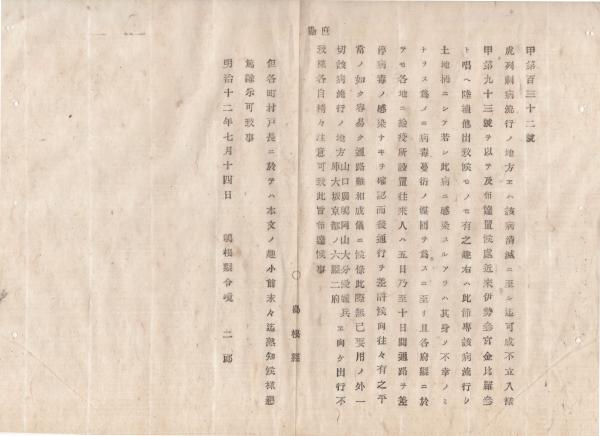 甲第百三十二號
虎列剌病流行ノ地方ヱハ該病消滅ニ至ル迄可成不立入樣
甲第九十三號ヲ以テ及布達置候處近來伊勢參宮金比羅參
ト唱ヘ陸續他出致候モノモ有之趣右ハ此節專該病流行ノ
土地柄ニシテ若シ此病ニ感染スルアリハ其身ノ不幸ノミ
ナラス爲メニ病毒蔓衍ノ媒図ヲ爲スニ至リ且各府縣ニ於
テモ各地ニ檢疫所設置往來人ハ五日乃至十日間通路ヲ差
停病毒ノ感染ナキヲ確認而後通行ヲ差許候向往々有之平
常ノ如ク容易ク通路難相成儀ニ候條此際無已要用ノ外一
切該病流行ノ地方山口廣嶋岡山大分愛媛兵庫大坂京都ノ六縣二府ヱ向ケ出行不
致樣各自精々注意可致此旨布達候事
○ 島根縣
但各町村戸長ニ於テハ本文ノ趣小前末々迄熟知候樣懇
篤諭示可致事
明治十二年七月十四日 嶋根縣令境 二郎